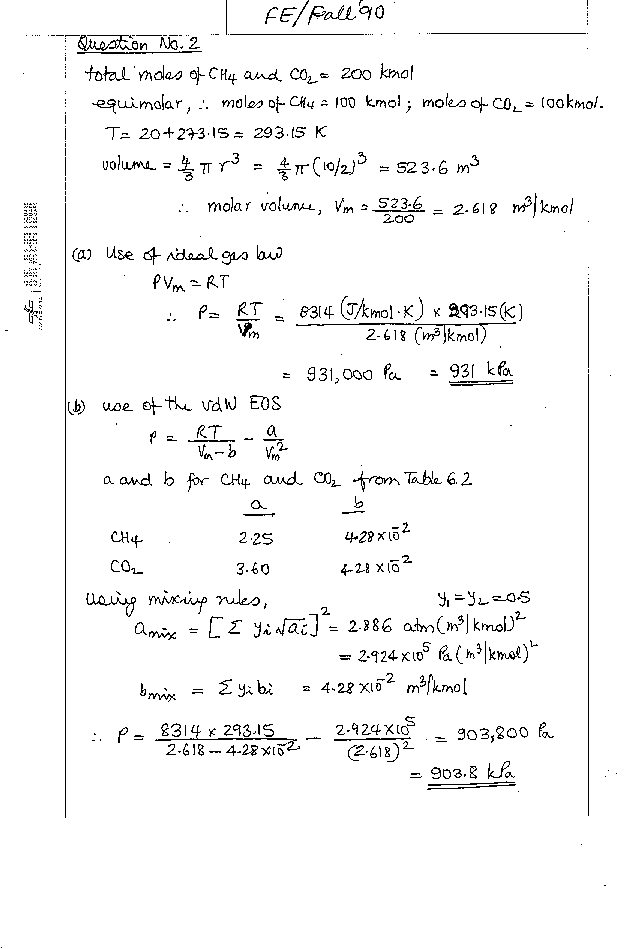 FE/Fall'90
Question No. 2
total moles of CH4 and CO2 = 200 kmol
equimolar, ∴ moles of CH4 = 100 kmol; moles of CO2 = 100 kmol.
T = 20+273.15 = 293.15 K
volume = 4/3 π r^3 = 4/3 π (10/2)^3 = 523.6 m^3
∴ molar volume, Vm = 523.6/200 = 2.618 m^3/kmol
(a) Use of ideal gas law
PVm = RT
∴ P = RT/Vm = 8314 (J/kmol·K) × 293.15(K) / 2.618 (m^3/kmol)
= 931,000 Pa = 931 kPa
(b) use of the vdW EOS
P = RT/(Vm-b) - a/Vm^2
a and b for CH4 and CO2 from Table 6.2
a b
CH4 2.25 4.28×10^-2
CO2 3.60 4.28×10^-2
Using mixing rules, y1=y2=0.5
amix = [Σ yi√ai]^2 = 2.886 atm(m^3/kmol)^2
= 2.924×10^5 Pa(m^3/kmol)^2
bmix = Σyibi = 4.28×10^-2 m^3/kmol
∴ P = 8314 × 293.15 / (2.618 - 4.28×10^-2) - 2.924×10^5/(2.618)^2 = 903,800 Pa
= 903.8 kPa